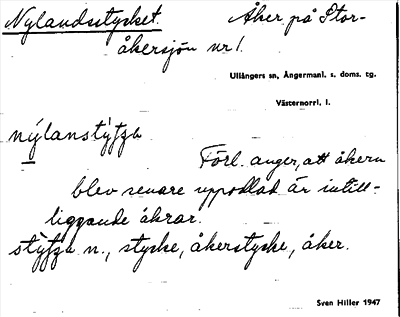 Nylandsstycket. Åker på Stor-
åkersjön nr 1.
Ullångers sn, Ångermanl. s. doms. tg.
Västernorrl. l.
nýlanstýtʒa
Förl. anger, att åkern
blev senare uppodlad är intill-
liggande åkrar.
stýtʒa n., stycke, åkerstycke, åker.
Sven Hiller 1947